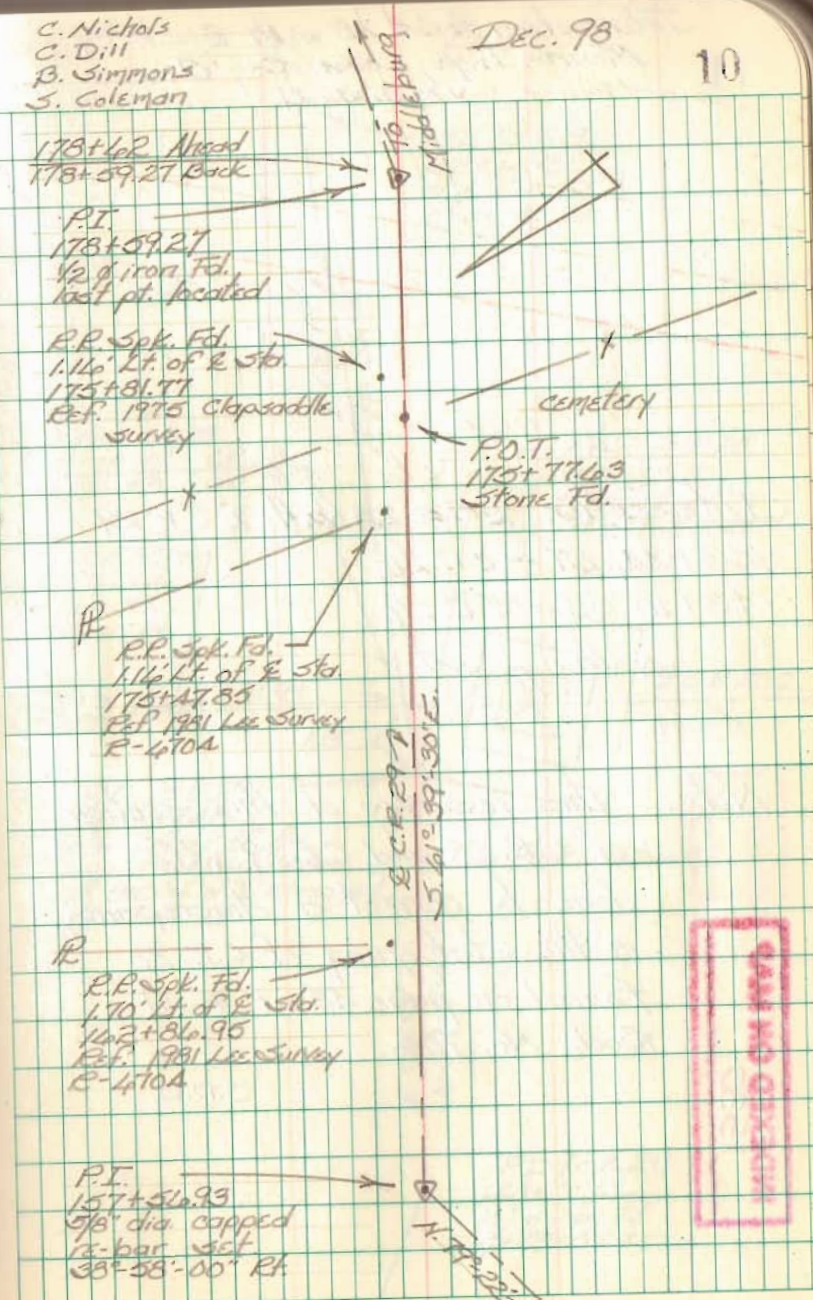 C. Nichols
C. Dill
B. Simmons
S. Coleman
Dec. 98
10
To Middleburg
178+62 Ahead
178+59.27 Back
P.I.
178+59.27
1/2 ø iron Fd.
last pt. located
R.R. Spk. Fd.
1.16' Lt. of ℄ Sta.
175+81.77
Ref. 1975 Clapsaddle
Survey
cemetery
P.O.T.
175+77.63
Stone Fd.
PL
R.R. Spk. Fd.
1.16' Lt. of ℄ Sta.
175+47.85
Ref 1981 Lee Survey
R-470A
℄ C.R. 29-A
S. 61°-39'-30" E.
PL
R.R. Spk. Fd.
1.70' Lt of ℄ Sta.
162+86.95
Ref. 1981 Lee Survey
R-470A
P.I.
157+56.93
5/8" dia. capped
re-bar set
38°-58'-00" Rt.
INDEXED ON CARD